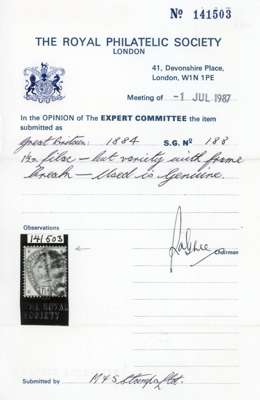 Nº 141503
THE ROYAL PHILATELIC SOCIETY
LONDON
41, Devonshire Place,
London, W1N 1PE
Meeting of -1 JUL 1987
In the OPINION of The EXPERT COMMITTEE the item
submitted as
Great Britain: 1884 S.G. Nº 188
lilac — but variety with frame
break — Used is Genuine.
Observations
141503
Chairman
THE ROYAL
SOCIETY
Submitted by M & S Stamps Ltd.